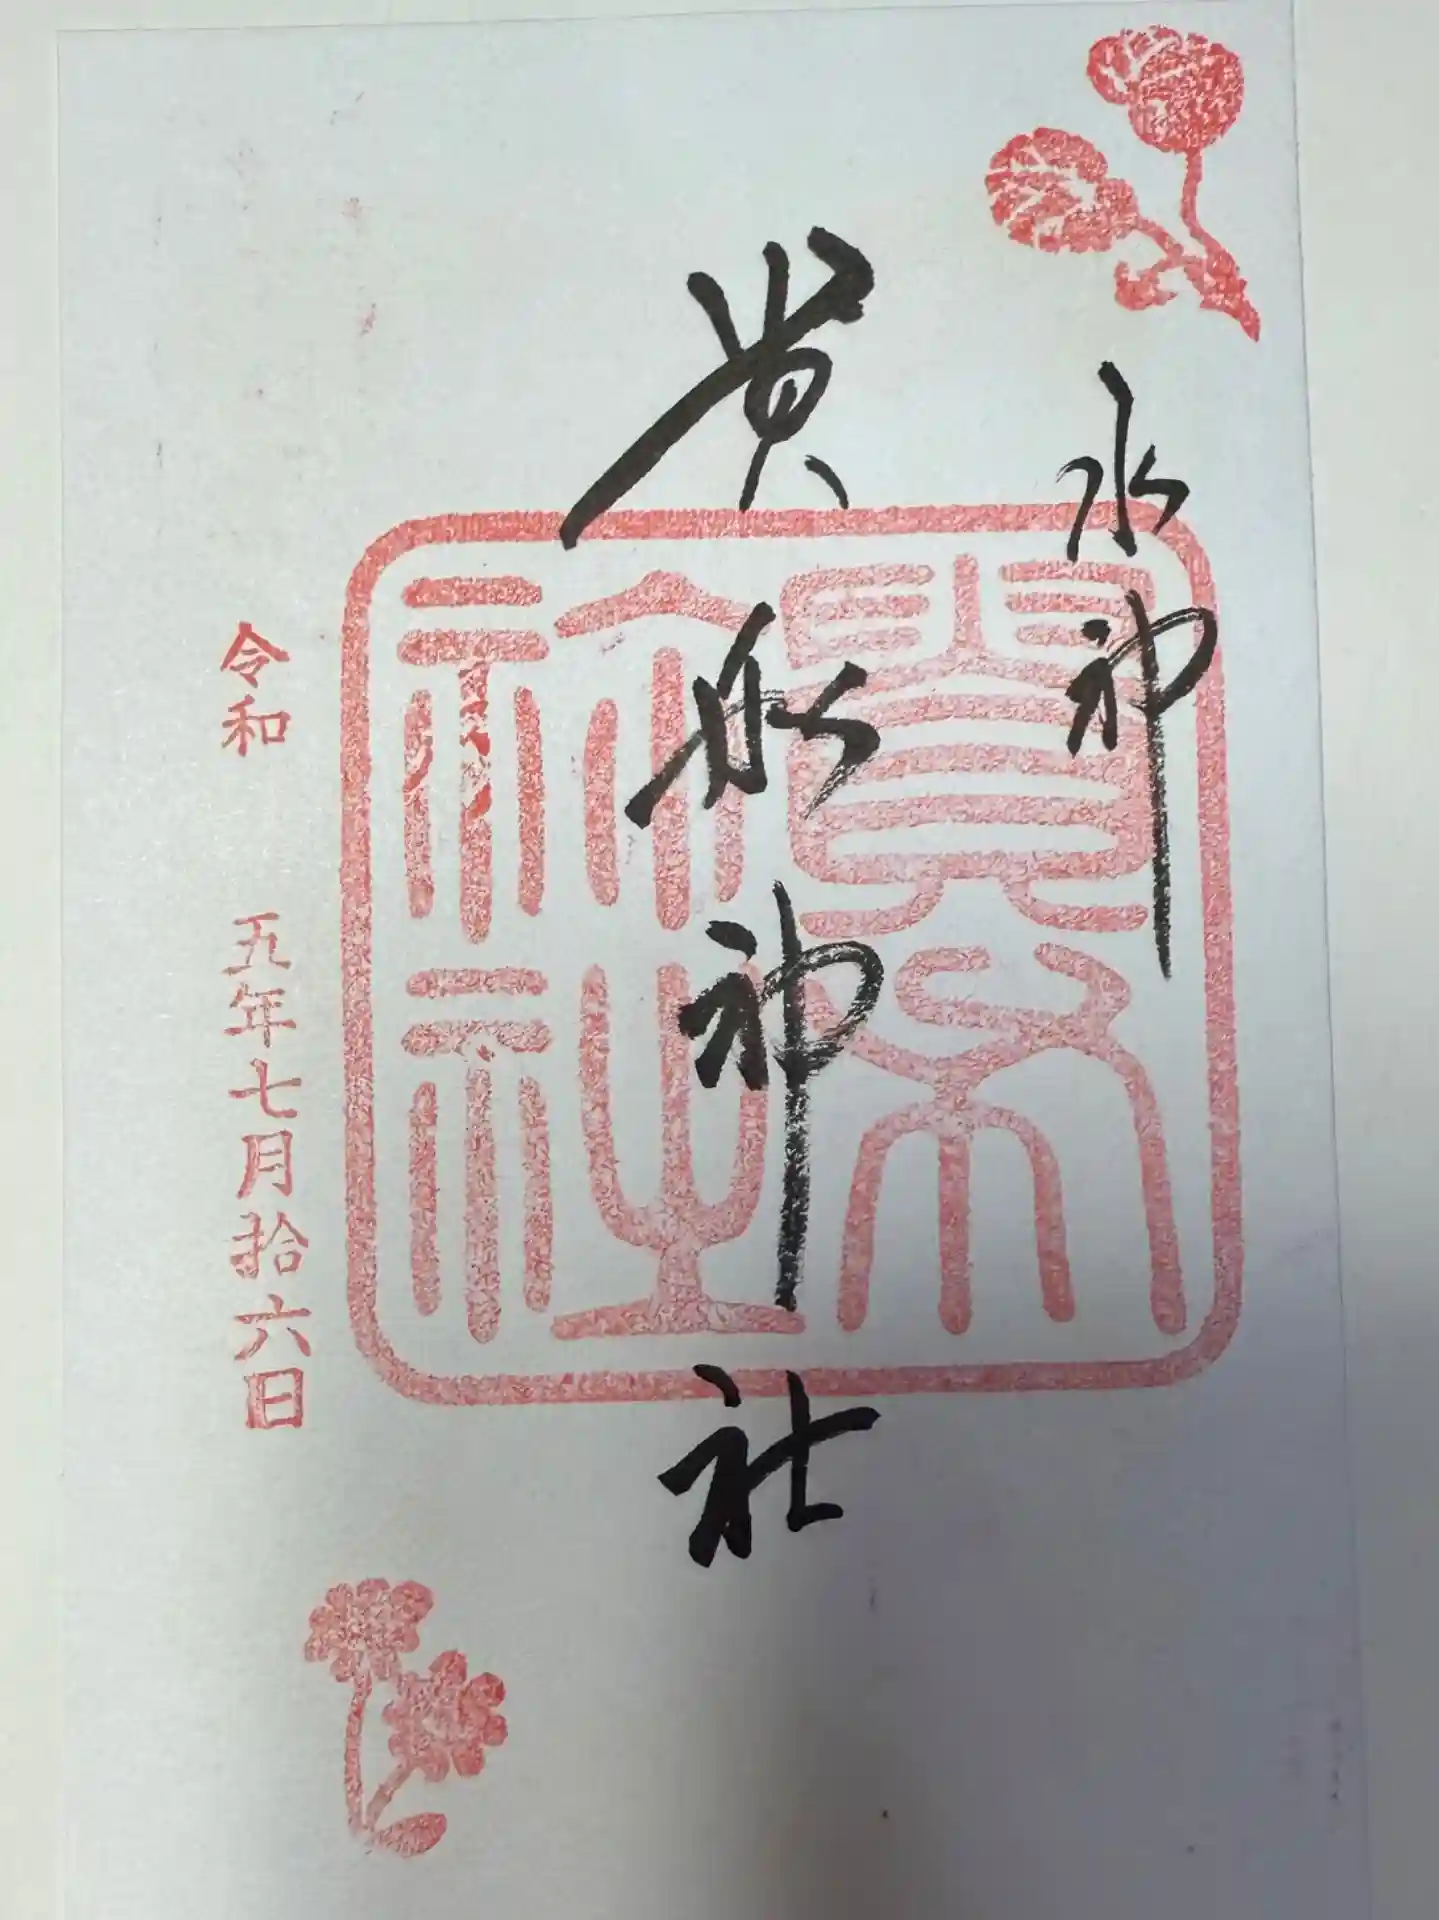 水神
貴船神社
貴布
祢社
令和 五年七月拾六日